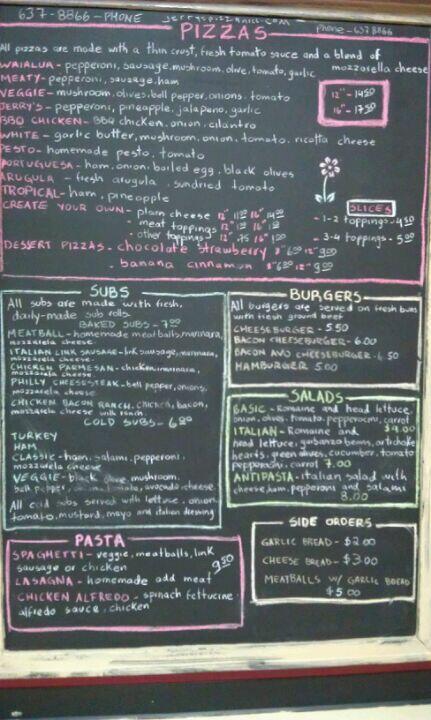 637-8866-PHONE jerryspizzahi.com
Phone-637 8866
PIZZAS
All pizzas are made with a thin crust, fresh tomato sauce and a blend of
mozzarella cheese
WAIALUA - pepperoni, sausage, mushroom, olive, tomato, garlic
MEATY - pepperoni, sausage, ham
VEGGIE - mushroom, olives, bell pepper, onions, tomato
12"-14.50
JERRY'S - pepperoni, pineapple, jalapeno, garlic
16"-17.50
BBQ CHICKEN - BBQ chicken, onion, cilantro
WHITE - garlic butter, mushroom, onion, tomato, ricotta cheese
PESTO - homemade pesto, tomato
PORTUGUESA - ham, onion, boiled egg, black olives
ARUGULA - fresh arugula, sundried tomato
TROPICAL - ham, pineapple
CREATE YOUR OWN - plain cheese 12" 16"
meat toppings 12" 16"
other toppings 12" .75 16"
SLICES
- 1-2 toppings - 4.50
- 3-4 toppings - 5.00
DESSERT PIZZAS - chocolate strawberry 8" 6.00 12" 9.00
- banana cinnamon 8" 6.00 12" 9.00
SUBS
All subs are made with fresh,
daily-made sub rolls.
BAKED SUBS - 7.00
MEATBALL - homemade meatballs, marinara,
mozzarella cheese
ITALIAN LINK SAUSAGE - link sausage, marinara,
mozzarella cheese
CHICKEN PARMESAN - chicken, marinara,
mozzarella cheese
PHILLY CHEESESTEAK - bell pepper, onions,
mozzarella cheese
CHICKEN BACON RANCH. chicken, bacon,
mozzarella cheese with ranch
COLD SUBS - 6.00
TURKEY
HAM
CLASSIC - ham, salami, pepperoni,
mozzarella cheese
VEGGIE - black olive, mushroom,
bell pepper, onion, tomato, avocado, cheese
All cold subs served with lettuce, onion,
tomato, mustard, mayo and italian dressing
BURGERS
All burgers are served on fresh buns
with fresh ground beef
CHEESEBURGER - 5.50
BACON CHEESEBURGER - 6.00
BACON AVO CHEESEBURGER - 6.50
HAMBURGER 5.00
SALADS
BASIC - Romaine and head lettuce,
onion, olives, tomato, pepperocini, carrot
ITALIAN - Romaine and
head lettuce, garbanzo beans, artichoke
hearts, green olives, cucumber, tomato
pepperocini, carrot 7.00
ANTIPASTA - italian salad with
cheese, ham, pepperoni and salami
8.00
PASTA
SPAGHETTI - veggie, meatballs, link
sausage or chicken
9.50
LASAGNA - homemade add meat
CHICKEN ALFREDO - spinach fettucine
alfredo sauce, chicken
SIDE ORDERS
GARLIC BREAD - $2.00
CHEESE BREAD - $3.00
MEATBALLS W/ GARLIC BREAD
$5.00